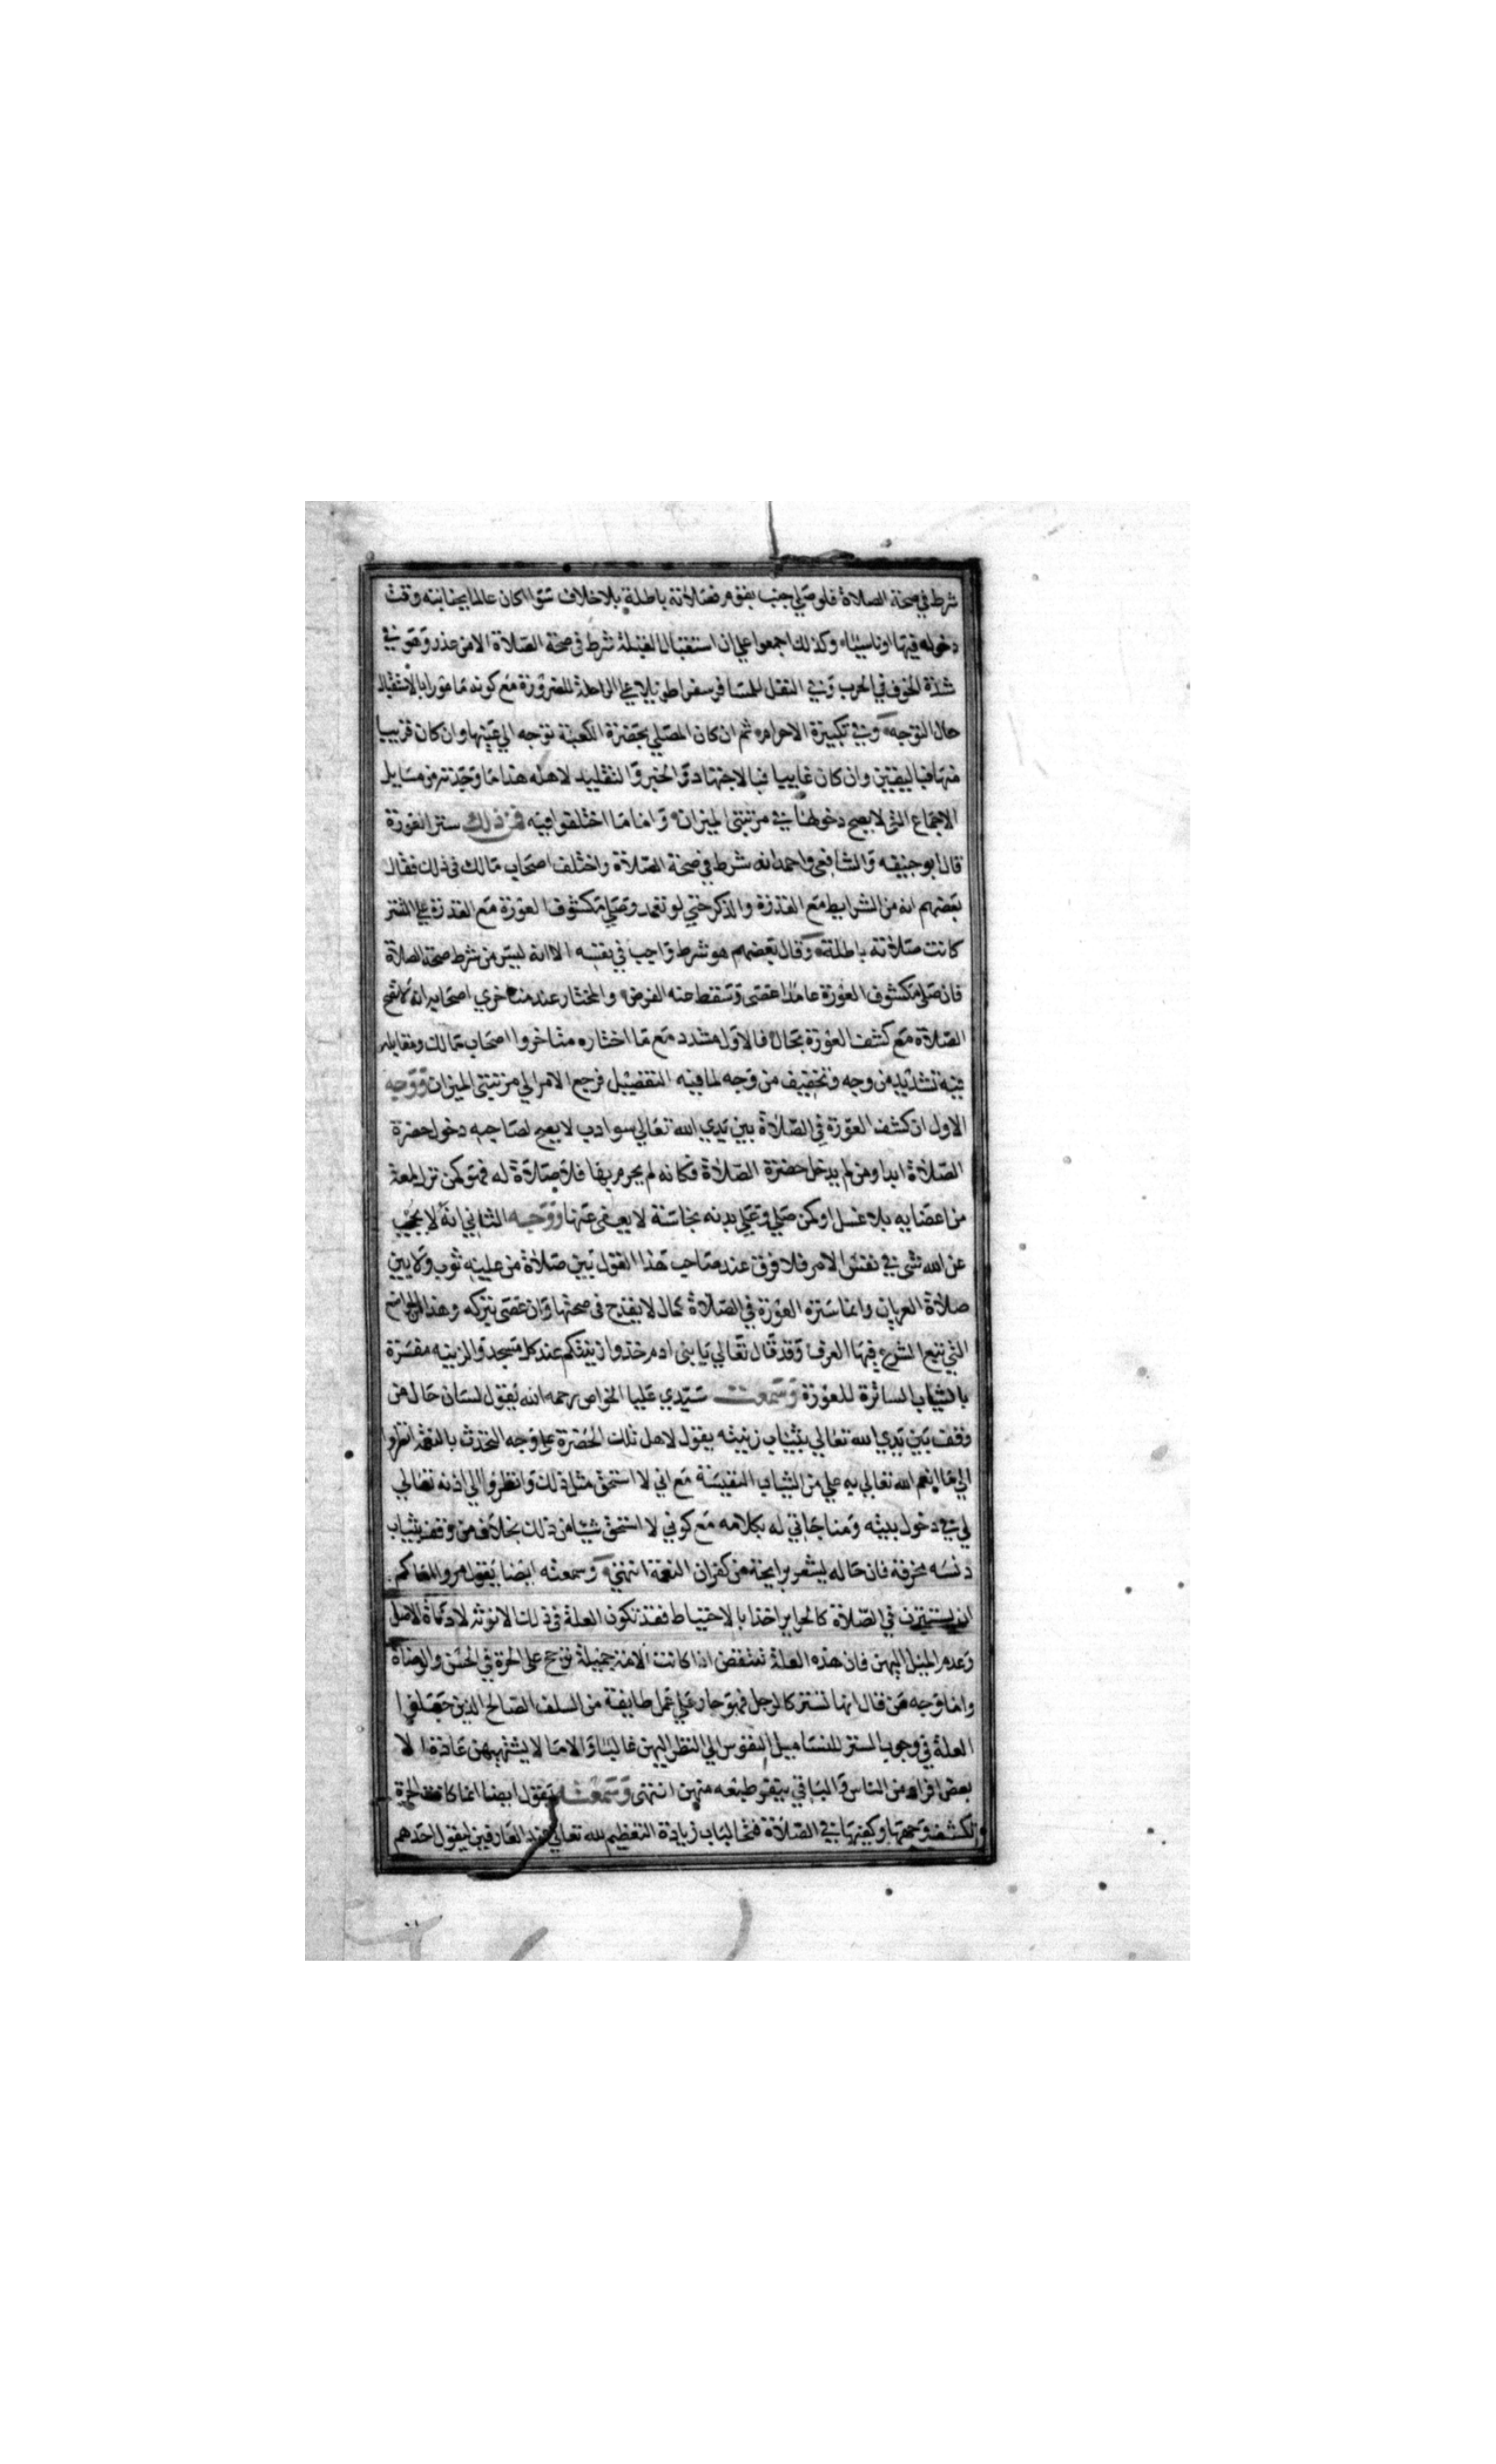 شرط في صحة الصلاة فلو صلي جنب بقوم فصلاته باطلة بلا خلاف سوا كان عالما بجنابته وقت
دخوله فيها او ناسيا وكذلك اجمعوا علي ان استقبال القبلة شرط في صحة الصلاة الا من عذر وهو في
شدة الخوف في الحرب وفي النفل للمسافر سفرا طويلا علي الراحلة للضرورة مع كونه مامورا بالاستقبال
حال التوجه وفي تكبيرة الاحرام ثم ان كان المصلي بحضرة الكعبة توجه الي عينها وان كان قريبا
منها فباليقين وان كان غايبا فبالاجتهاد والخبر والتقليد لاهله هذا ما وجدته من مسايل
الاجماع التي لا يصح دخولها في مرتبتي الميزان واما ما اختلفوا فيه فمن ذلك ستر العورة
قال ابو حنيفه والشافعي واحمد انه شرط في صحة الصلاة واختلف اصحاب مالك في ذلك فقال
بعضهم انه من الشرايط مع القدرة والذكر حتي لو تعمد وصلي مكشوف العورة مع القدرة علي الستر
كانت صلاته باطلة وقال بعضهم هو شرط واجب في نفسه الا انه ليس من شرط صحة الصلاة
فان صلي مكشوف العورة عامدا عصى وسقط عنه الفرض والمختار عند متاخري اصحابه انه لا تصح
الصلاة مع كشف العورة بحال فالاول مشدد مع ما اختاره متاخروا اصحاب مالك ومقابله
فيه تشديد من وجه وتخفيف من وجه لما فيه التفضيل فرجع الامر الي مرتبتي الميزان ووجه
الاول ان كشف العورة في الصلاة بين يدي الله تعالي سو ادب لا يصح لصاحبه دخول حضرة
الصلاة ابدا ومن لم يدخل حضرة الصلاة فكانه لم يحرم بها فلا صلاة له فهو كمن ترك لمعة
من اعضايه بلا غسل او كمن صلي وعلي بدنه نجاسة لا يعفى عنها ووجه الثاني انه لا يحجب
عن الله شي في نفس الامر فلا فرق عند صاحب هذا القول بين صلاة من عليه ثوب ولا بين
صلاة العريان وانما ستره العورة في الصلاة كمال لا يقدح في صحتها وان عصى بتركه وهذا من المواضع
التي تبع الشرع فيها العرف وقد قال تعالي يا بني ادم خذوا زينتكم عند كل مسجد والزينه مفسرة
بالثياب الساترة للعورة وسمعت سيدي عليا الخواص رحمه الله يقول لسان حال من
وقف بين يدي الله تعالي بثياب زينته يقول لاهل تلك الحضرة علي وجه التحدث بالنعمة انظروا
الي ما انعم الله تعالي به علي من الثياب النفيسة مع اني لا استحق مثل ذلك وانظروا الي اذنه تعالي
لي في دخول بيته ومناجاتي له بكلامه مع كوني لا استحق شيا من ذلك بخلاف من وقف بثياب
دنسه مخرقة فان حاله يشعر برايحة من كفران النعمة انتهي وسمعته ايضا يقول مروا اماكم
ان يستترن في الصلاة كالحراير اخذا بالاحتياط فقد تكون العلة في ذلك الانوثة لا دناة الاصل
وعدم الميل اليهن فان هذه العلة تنتقض اذا كانت الامة جميلة ترجح علي الحرة في الحسن والوضاة
واما وجه من قال انها تستتر كالرجل فهو جار علي عمل طايفة من السلف الصالح الذين جعلوا
العلة في وجوب الستر للنسا ميل النفوس الي النظر اليهن غالبا والاما لا يشتهيهن عادة الا
بعض افراد من الناس والباقي ينفر طبعه منهن انتهى وسمعته يقول ايضا انما كانت الحرة
تكشف وجهها وكفيها في الصلاة فتحا لباب زيادة التعظيم لله تعالي عند العارفين ليقول احدهم